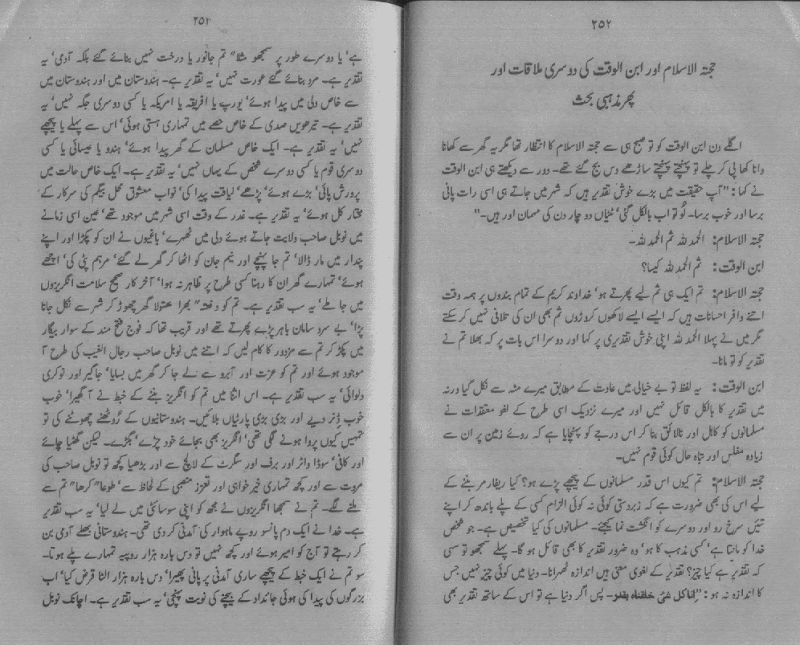 ۲۵۲
حجتہ الاسلام اور ابن الوقت کی دوسری ملاقات اور
پھر مذہبی بحث
اگلے دن ابن الوقت کو تو صبح ہی سے حجتہ الاسلام کا انتظار تھا مگر یہ گھر سے کھانا
وانا کھا پی کر چلے تو پہنچتے پہنچتے ساڑھے دس بج گئے تھے۔ دور سے دیکھتے ہی ابن الوقت
نے کہا: "آپ حقیقت میں بڑے خوش تقدیر ہیں کہ شہر میں جاتے ہی اسی رات پانی
برسا اور خوب برسا۔ لُو تو اب بالکل گئی' ٹٹیاں دو چار دن کی مہمان اور ہیں۔"
حجتہ الاسلام: الحمد للہ ثم الحمد للہ۔
ابن الوقت: ثم الحمد للہ کیسا؟
حجتہ الاسلام: تم ایک ہی ثم لیے پھرتے ہو' خداوند کریم کے تمام بندوں پر ہمہ وقت
اتنے وافر احسانات ہیں کہ ایسے ایسے لاکھوں کروڑوں ثم بھی ان کی تلافی نہیں کر سکتے
مگر میں نے پہلا الحمد للہ اپنی خوش تقدیری پر کہا اور دوسرا اس بات پر کہ بھلا تم نے
تقدیر کو تو مانا۔
ابن الوقت: یہ لفظ تو بے خیالی میں عادت کے مطابق میرے منہ سے نکل گیا ورنہ
میں تقدیر کا بالکل قائل نہیں اور میرے نزدیک اسی طرح کے لغو معتقدات نے
مسلمانوں کو کاہل اور نالائق بنا کر اس درجے کو پہنچایا ہے کہ روئے زمین پر ان سے
زیادہ مفلس اور تباہ حال کوئی قوم نہیں۔
حجتہ الاسلام: تم کیوں اس قدر مسلمانوں کے پیچھے پڑے ہو؟ کیا ریفارمر بننے کے
لیے اس کی بھی ضرورت ہے کہ زبردستی کوئی نہ کوئی الزام کسی کے پلے باندھ کر اپنے
تئیں سرخ رو اور دوسرے کو انگشت نما کیجئے۔ مسلمانوں کی کیا تخصیص ہے۔ جو شخص
خدا کو مانتا ہے' کسی مذہب کا ہو' وہ ضرور تقدیر کا بھی قائل ہو گا۔ پہلے سمجھو تو سہی
کہ تقدیر ہے کیا چیز؟ تقدیر کے لغوی معنی ہیں اندازہ ٹھہرانا۔ دنیا میں کوئی چیز نہیں جس
کا اندازہ نہ ہو: "اناکل شئ خلقناہ بقدر۔ پس اگر دنیا ہے تو اس کے ساتھ تقدیر بھی
۲۵۳
ہے' یا دوسرے طور پر سمجھو مثلا" تم جانور یا درخت نہیں بنائے گئے بلکہ آدمی' یہ
تقدیر ہے۔ مرد بنائے گئے عورت نہیں' یہ تقدیر ہے۔ ہندوستان میں اور ہندوستان میں
سے خاص دلی میں پیدا ہوئے' یورپ یا افریقہ یا امریکہ یا کسی دوسری جگہ نہیں' یہ
تقدیر ہے۔ تیرھویں صدی کے خاص حصے میں تمہاری ہستی ہوئی' اس سے پہلے یا پیچھے
نہیں' یہ تقدیر ہے۔ ایک خاص مسلمان کے گھر پیدا ہوئے' ہندو یا عیسائی یا کسی
دوسری قوم یا کسی دوسرے شخص کے یہاں نہیں' یہ تقدیر ہے۔ ایک خاص حالت میں
پرورش پائی' بڑے ہوئے' پڑھے' لیاقت پیدا کی' نواب معشوق محل بیگم کی سرکار کے
مختار کل ہوئے' یہ تقدیر ہے۔ غدر کے وقت اسی شہر میں موجود تھے' عین اسی زمانے
میں نوبل صاحب ولایت جاتے ہوئے دلی میں ٹھہرے' باغیوں نے ان کو پکڑا اور اپنے
پندار میں مار ڈالا' تم جا پہنچے اور نیم جان کو اٹھا کر گھر لے گئے' مرہم پٹی کی' اچھے
ہوئے' تمہارے گھر ان کا رہنا کسی طرح پر ظاہر نہ ہوا' آخر کار صحیح سلامت انگریزوں
میں جا ملے' یہ سب تقدیر ہے۔ تم کو دفعتہ" بھرا بھتولا گھر چھوڑ کر شہر سے نکل جانا
پڑا' بے سرو سامان باہر پڑے پھرتے تھے اور قریب تھا کہ فوج فتح مند کے سوار بیگار
میں پکڑ کر تم سے مزدور کا کام لیں کہ اتنے میں نوبل صاحب رجال الغیب کی طرح آ
موجود ہوئے اور تم کو عزت اور آبرو سے لے جا کر گھر میں بسایا' جاگیر اور نوکری
دلوائی' یہ سب تقدیر ہے۔ اس اثنا میں تم کو انگریز بننے کے خبط نے آ گھیرا' خوب
خوب ڈنر دیے اور بڑی بڑی پارٹیاں بلائیں۔ ہندوستانیوں کے روٹھنے چھوٹنے کی تو
تمہیں کیوں پروا ہونے لگی تھی' انگریز بھی بجائے خود چڑے' بگڑے۔ لیکن کھٹیا چائے
اور کافی' سوڈا واٹر اور برف اور سگرٹ کے لالچ سے اور بڑھیا کچھ تو نوبل صاحب کی
مروت سے اور کچھ تمہاری خیر خواہی اور تعزز منصبی کے لحاظ سے' طوعا" کرھا" تم سے
ملنے لگے۔ تم نے سمجھا انگریزوں نے مجھ کو اپنی سوسائٹی میں لے لیا' یہ سب تقدیر
ہے۔ خدا نے ایک دم پانسو روپے ماہوار کی آمدنی کر دی تھی۔ ہندوستانی بھلے آدمی بن
کر رہتے تو آج کو امیر ہوتے اور کچھ نہیں تو دس بارہ ہزار روپیہ تمہارے پلے ہوتا۔
سو تم نے ایک خبط کے پیچھے ساری آمدنی پر پانی پھیرا' دس بارہ ہزار الٹا قرض کیا' اب
بزرگوں کی پیدا کی ہوئی جائداد کے بیچنے کی نوبت پہنچی' یہ سب تقدیر ہے۔ اچانک نوبل